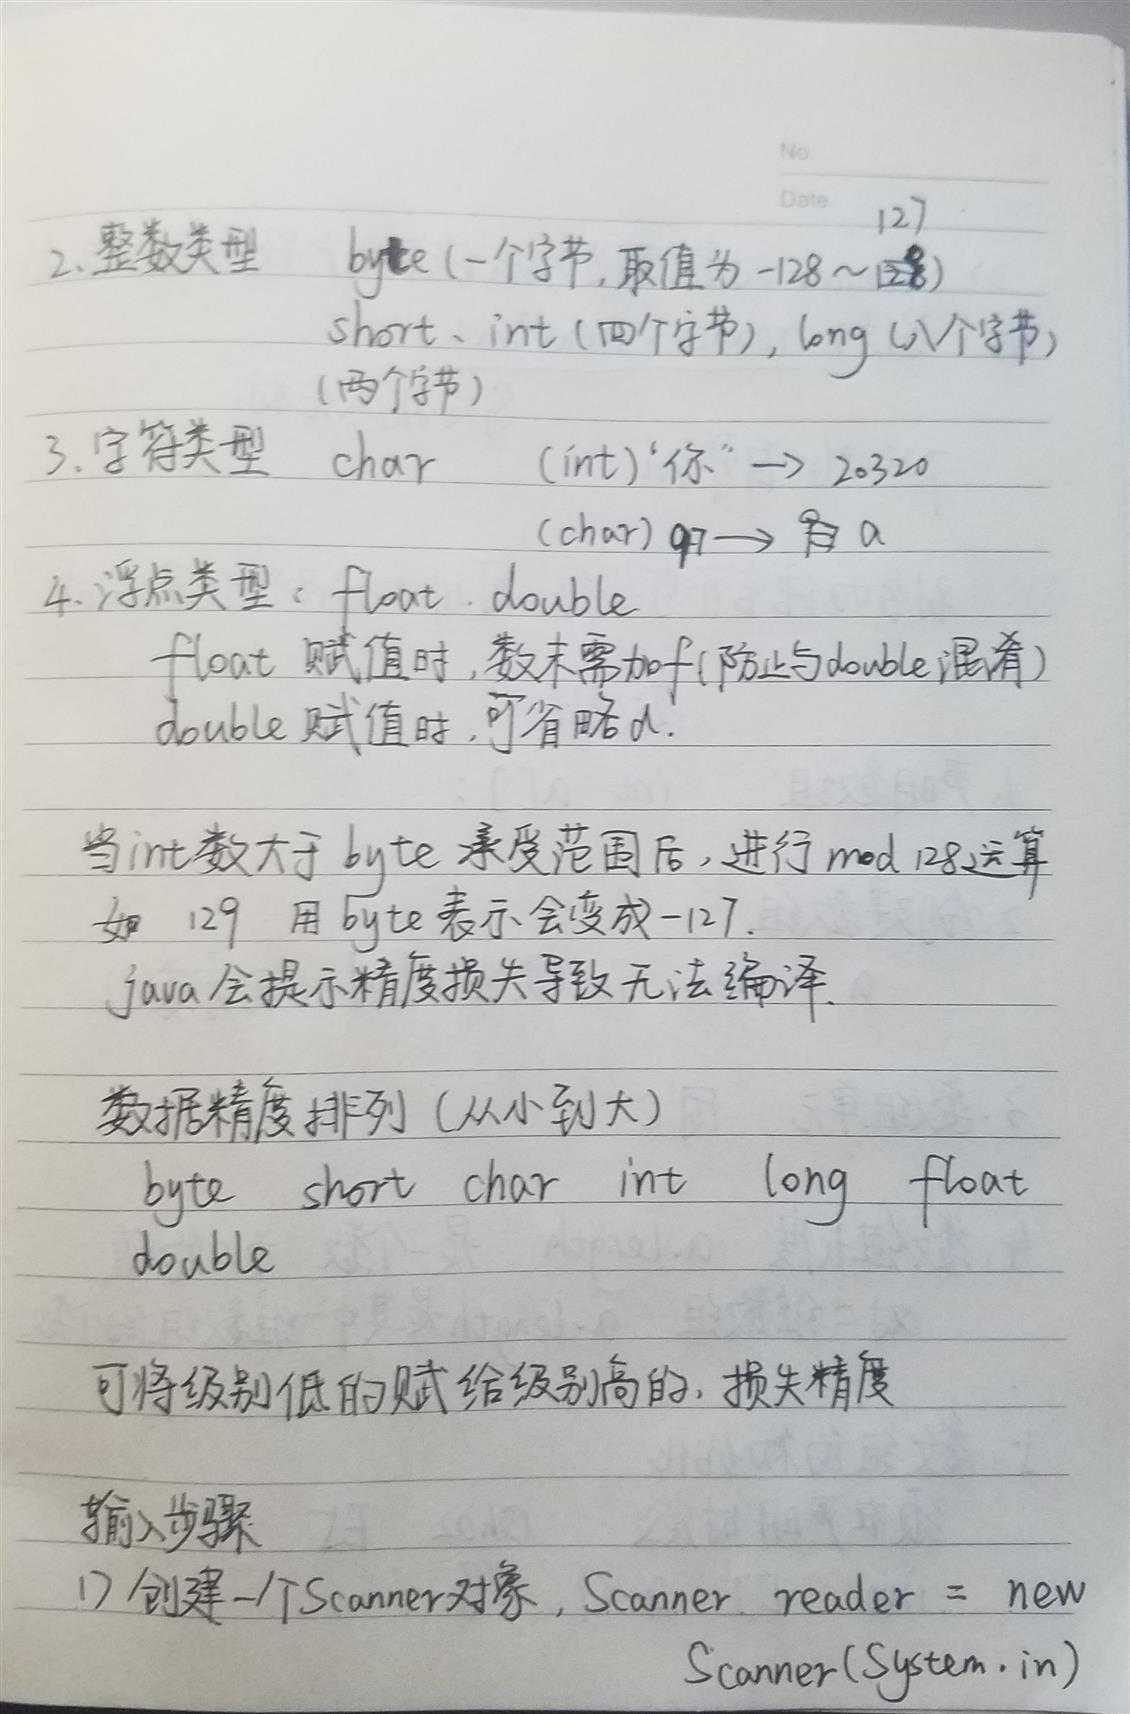 No.
Date
127
2.整数类型 byte(一个字节,取值为-128~128)
short、int(四个字节),long(八个字节)
(两个字节)
3.字符类型 char (int)‘你” → 20320
(char) 97 → a
4.浮点类型:float.double
float 赋值时,数末需加f(防止与double混淆)
double 赋值时,可省略d.
当int数大于byte承受范围后,进行mod 128运算
如 129 用byte表示会变成-127.
java会提示精度损失导致无法编译.
数据精度排列(从小到大)
byte short char int long float
double
可将级别低的赋给级别高的,损失精度
输入步骤
1)创建一个Scanner对象,Scanner reader = new
Scanner(System.in)